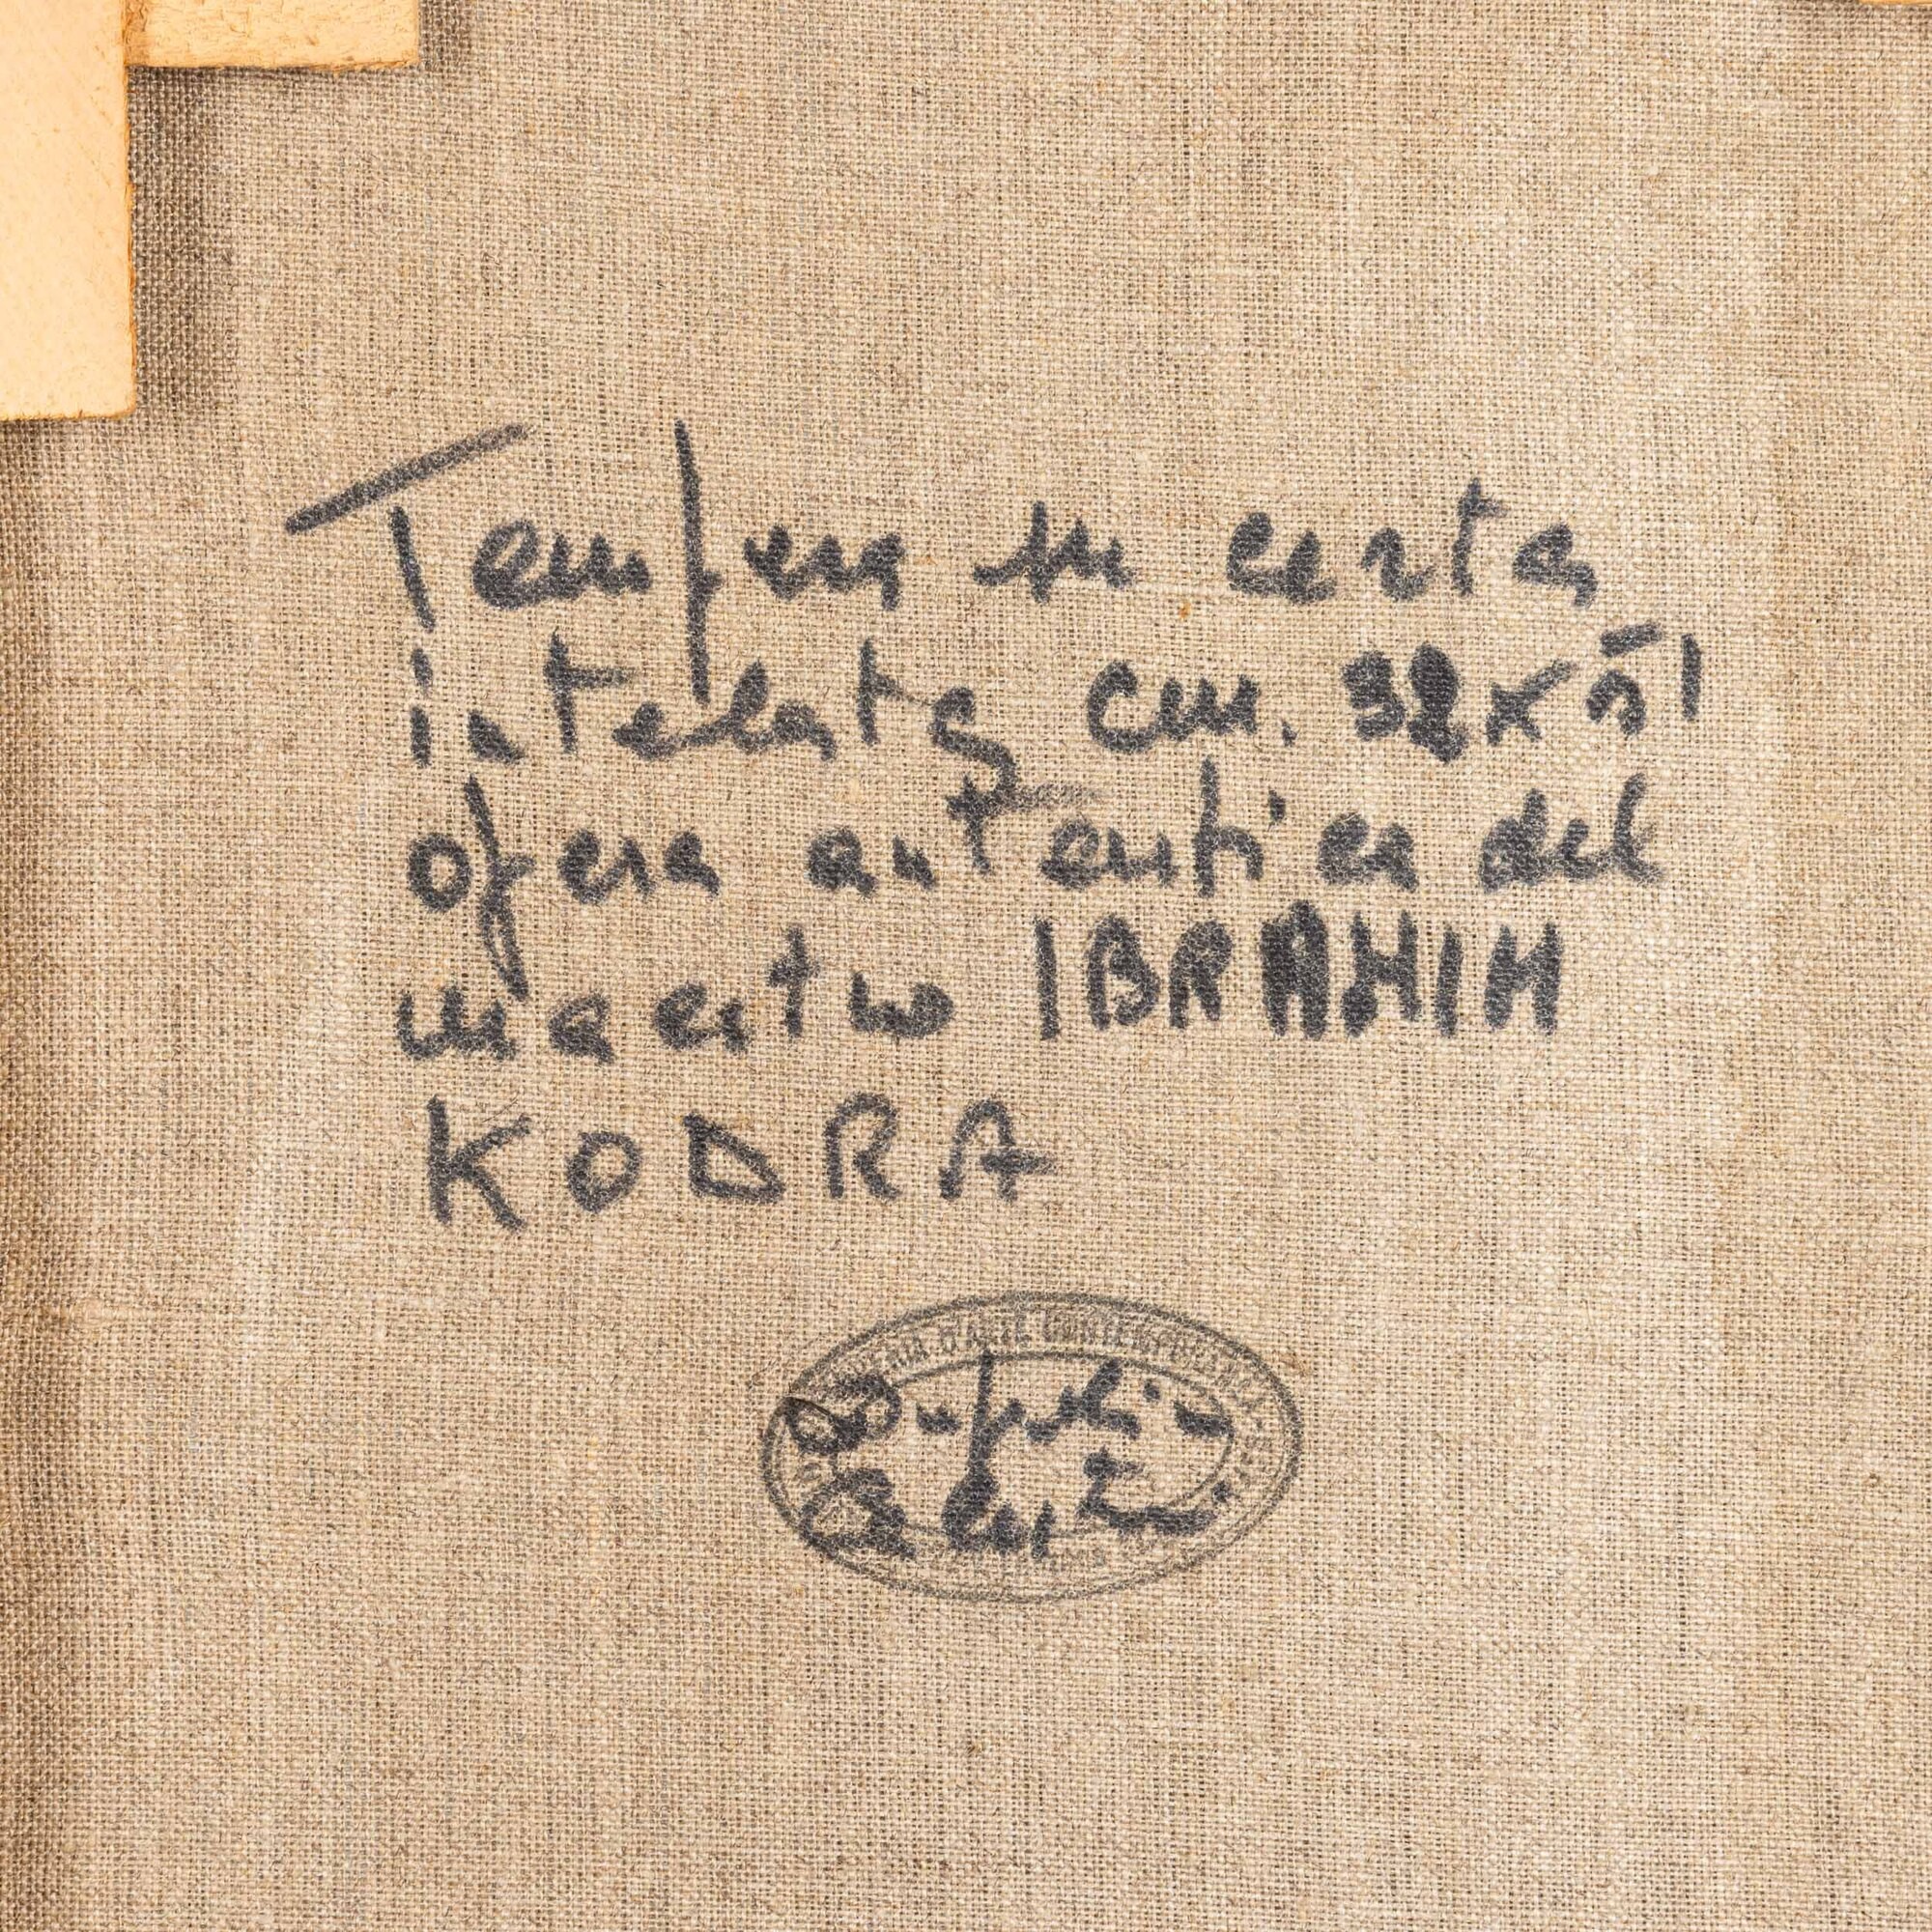 Tempera su carta
intelata cm. 32x51
opera autentica del
maestro IBRAHIM
KODRA
D'ARTE CONTEMPORANEA